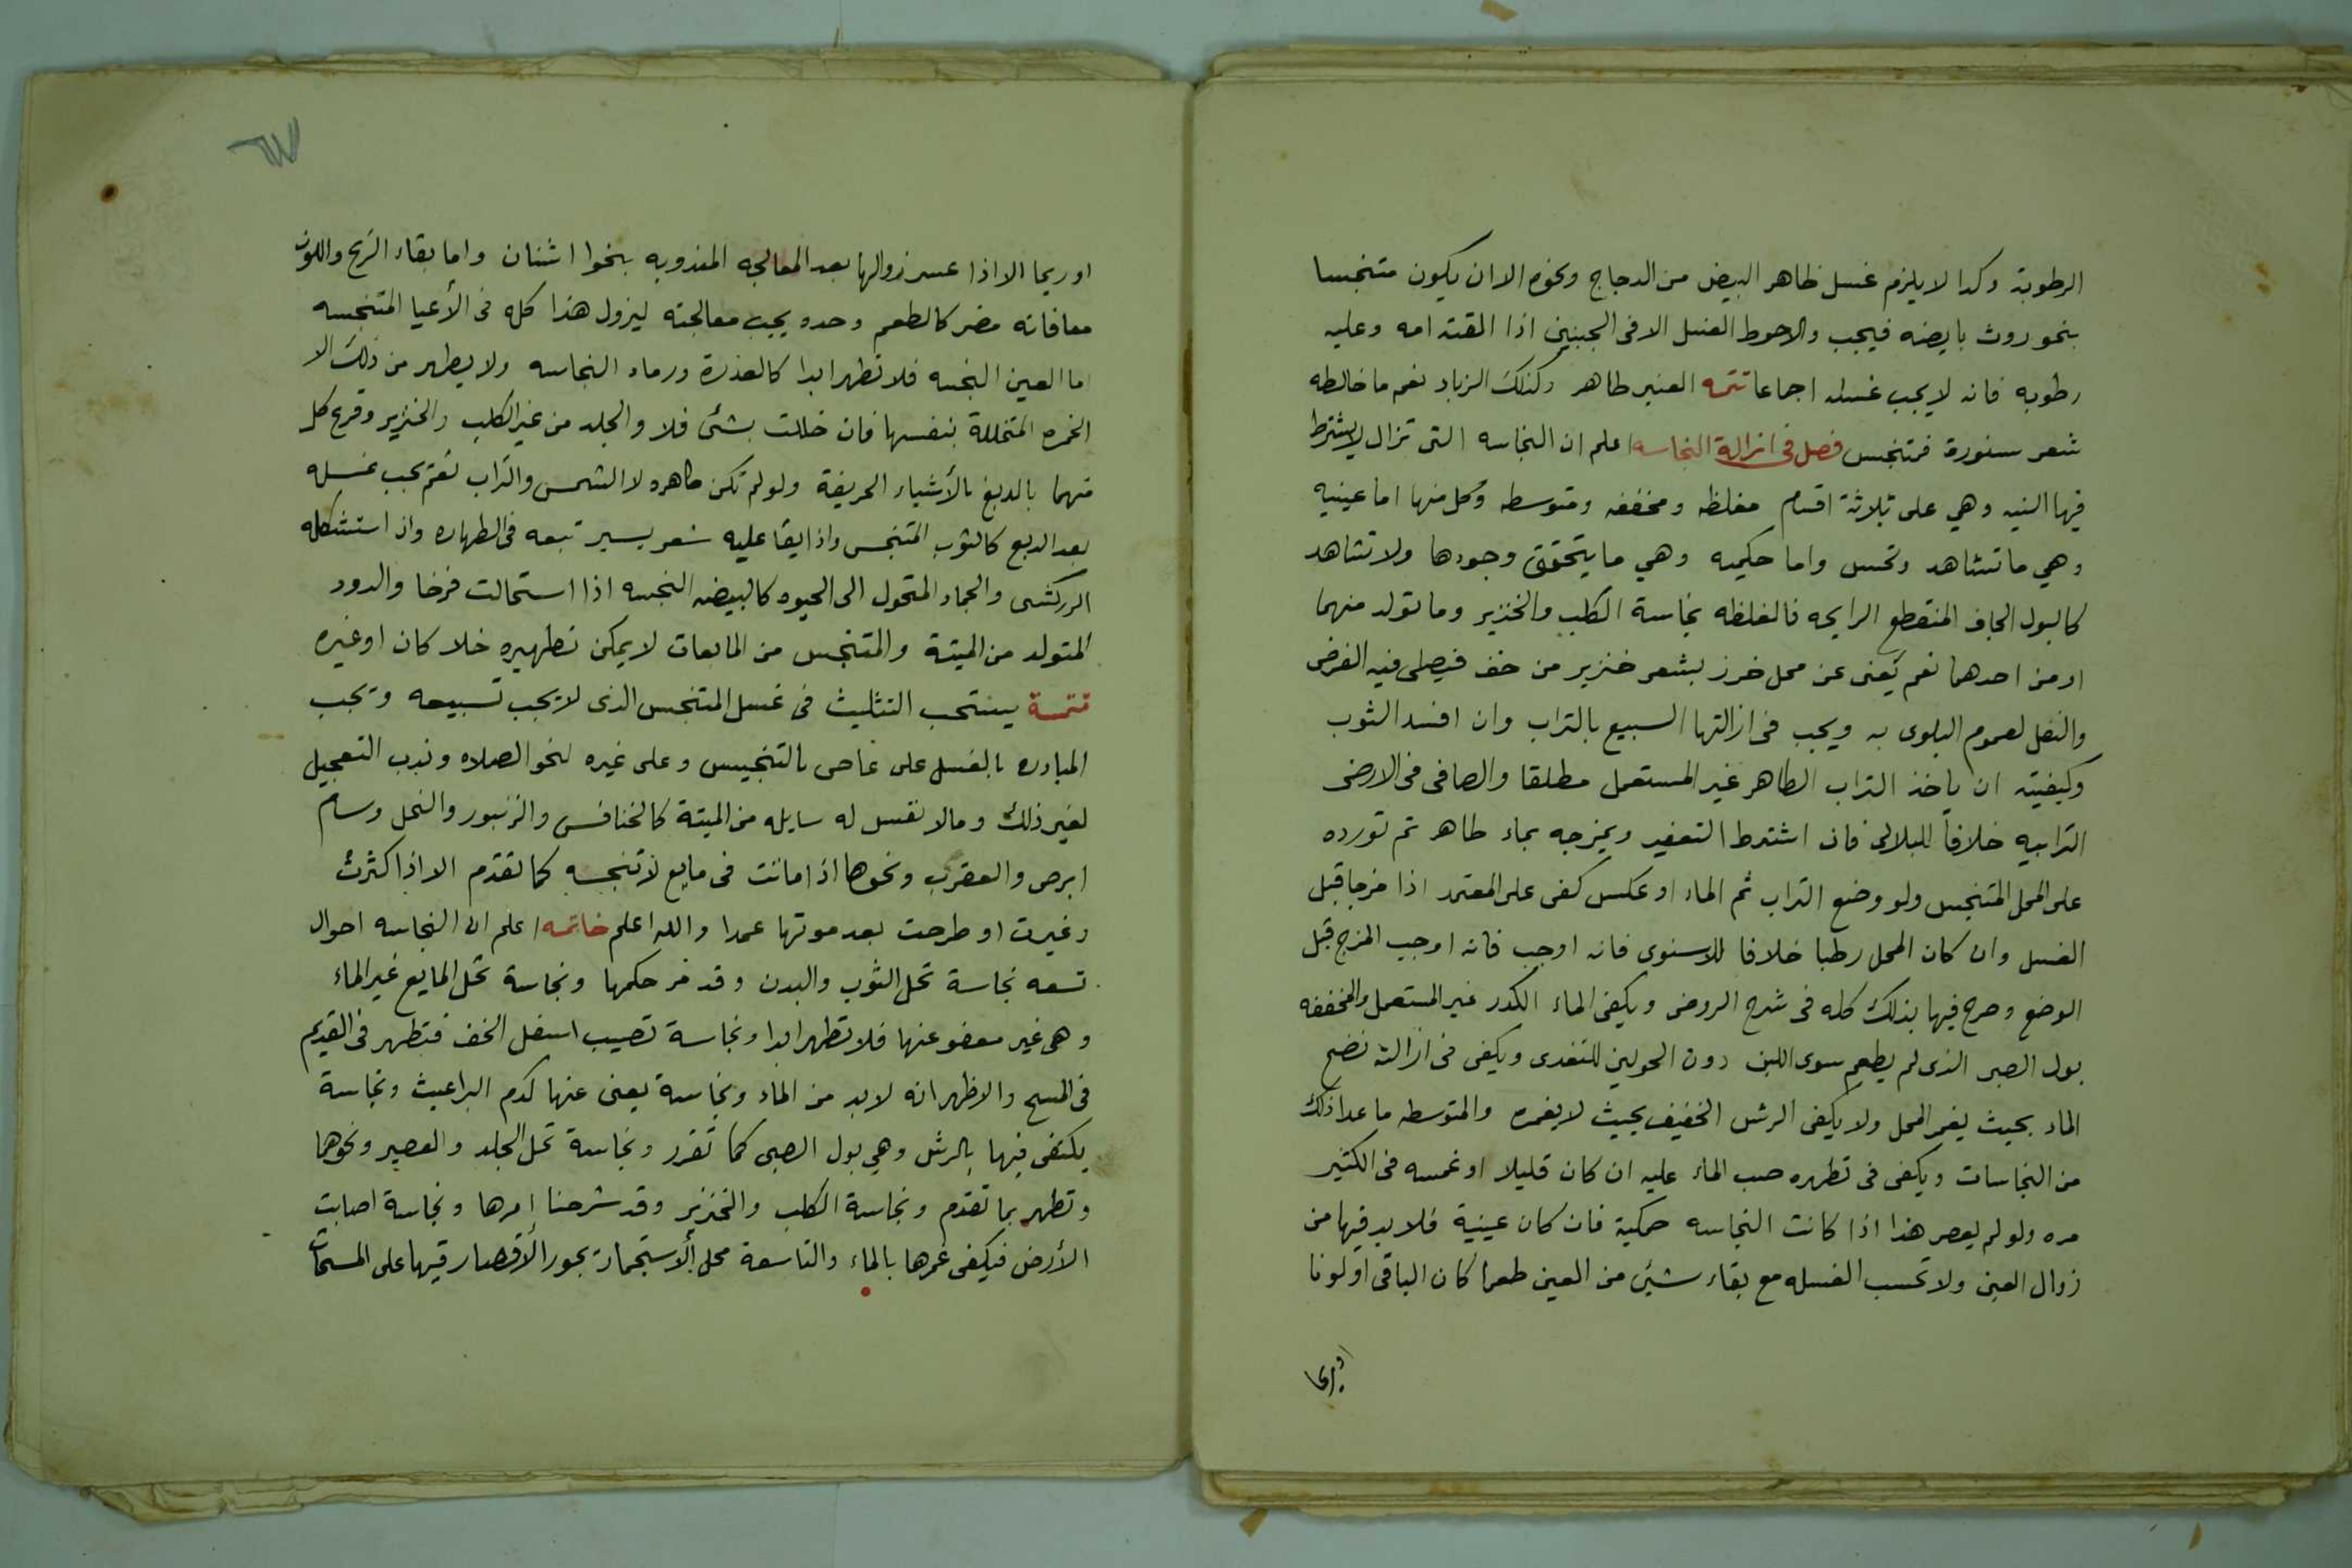 الرطوبة وكدا لا يلزم غسل ظاهر البيض من الدجاج ونحوه الا ان يكون متنجسا
بنحو روث بايضه فيجب والاحوط الغسل الا فى الجنين اذا القته امه وعليه
رطوبه فانه لا يجب غسله اجماعا تتمه العنبر طاهر وكذلك الزباد نعم ما خالطه
شعر سنورة فمتنجس فصل فى ازالة النجاسه اعلم ان النجاسه التى تزال لا يشترط
فيها النيه وهي على ثلاثة اقسام مغلظه ومخففه ومتوسطه وكل منها اما عينيه
وهي ما تشاهد وتحس واما حكميه وهي ما يتحقق وجودها ولا تشاهد
كالبول الجاف المنقطع الرايحه فالمغلظه نجاسة الكلب والخنزير وما تولد منهما
او من احدهما نعم يعفى عن محل خرز بشعر خنزير من خف فيصلى فيه الفرض
والنفل لعموم البلوى به ويجب فى ازالتها السبيع بالتراب وان افسد الثوب
وكيفيته ان ياخذ التراب الطاهر غير المستعمل مطلقا والصافى فى الارض
الترابيه خلافاً للبلالى فانه اشترط التعفير ويمزجه بماء طاهر ثم تورده
على المحل المتنجس ولو وضع التراب ثم الماء او عكس كفى على المعتمد اذا مزجا قبل
الغسل وان كان المحل رطبا خلافا للاسنوى فانه اوجب فانه اوجب المزج قبل
الوضع وصرح فيها بذلك كله فى شرح الروض ويكفى الماء الكدر غير المستعمل والمخففه
بول الصبى الذى لم يطعم سوى اللبن دون الحولين للتغدى ويكفى فى ازالته نضح
الماء بحيث يغمر المحل ولا يكفى الرش الخفيف بحيث لا يغمره والمتوسطه ما عدا ذلك
من النجاسات ويكفى فى تطهره صب الماء عليه ان كان قليلا او غمسه فى الكثير
مره ولو لم يعصر هذا اذا كانت النجاسه حكمية فان كان عينية فلا بد فيها من
زوال العين ولا تحسب الغسله مع بقاء شئ من العين طعما كان الباقى او لونا
او ريحا
او ريحا الا اذا عسر زوالها بعد المعالجه المندوبه بنحوا اشنان واما بقاء الريح واللون
معافانه مضر كالطعم وحده يجيب معالجته ليزول هذا كله فى الأعيا المتنجسه
اما العين النجسه فلا تطهر ابدا كالعذرة ورماد النجاسه ولا يطهر من ذلك الا
الخمره المتخللة بنفسها فان خللت بشئ فلا والجلد من غير الكلب والخنزير وفرع كل
منهما بالدبغ بالأشياء الحريفة ولو لم تكن طاهره لا الشمس والتراب نعم يجب غسله
بعد الدبع كالثوب المتنجس واذا يقا عليه شعر يسير تبعه فى الطهاره وان استشكله
الزركشى والجماد المتحول الى الحيوه كالبيضه النجسه اذا استحالت فرخا والدود
المتولد من الميتة والمتنجس من المايعات لا يمكن تطهيره خلا كان او غيره
تتمة يستحب التثليث فى غسل المتنجس الذى لا يجب تسبيعه ويجب
المبادره بالغسل على عاصى بالتنجيس وعلى غيره لنحو الصلاه وندب التعجيل
لغير ذلك وما لا نفس له سايله من الميتة كالخنافس والزنبور والنحل وسام
ابرص والعقرب ونحوها اذا ماتت فى مايع لا تنجسه كما تقدم الا اذا كثرت
وغيرت او طرحت بعد موتها عمدا والله اعلم خاتمه اعلم ان النجاسه احوال
تسعه نجاسة تحل الثوب والبدن وقد مر حكمها ونجاسة تحل المايع غير الماء
وهى غير معفو عنها فلا تطهر ابدا ونجاسة تصيب اسفل الخف فتطهر فى القديم
فى المسح والاظهر انه لا بد من الماء ونجاسة يعفى عنها كدم البراغيث ونجاسة
يكتفى فيها بالرش وهي بول الصبى كما تقرر ونجاسة تحل الجلد والعصير ونحوهما
وتطهر بما تقدم ونجاسة الكلب والخنزير وقد شرحنا امرها ونجاسة اصابت
الأرض فيكفى غمرها بالماء والتاسعة محل الاستجمار يجوز الاقصار فيها على المسحات